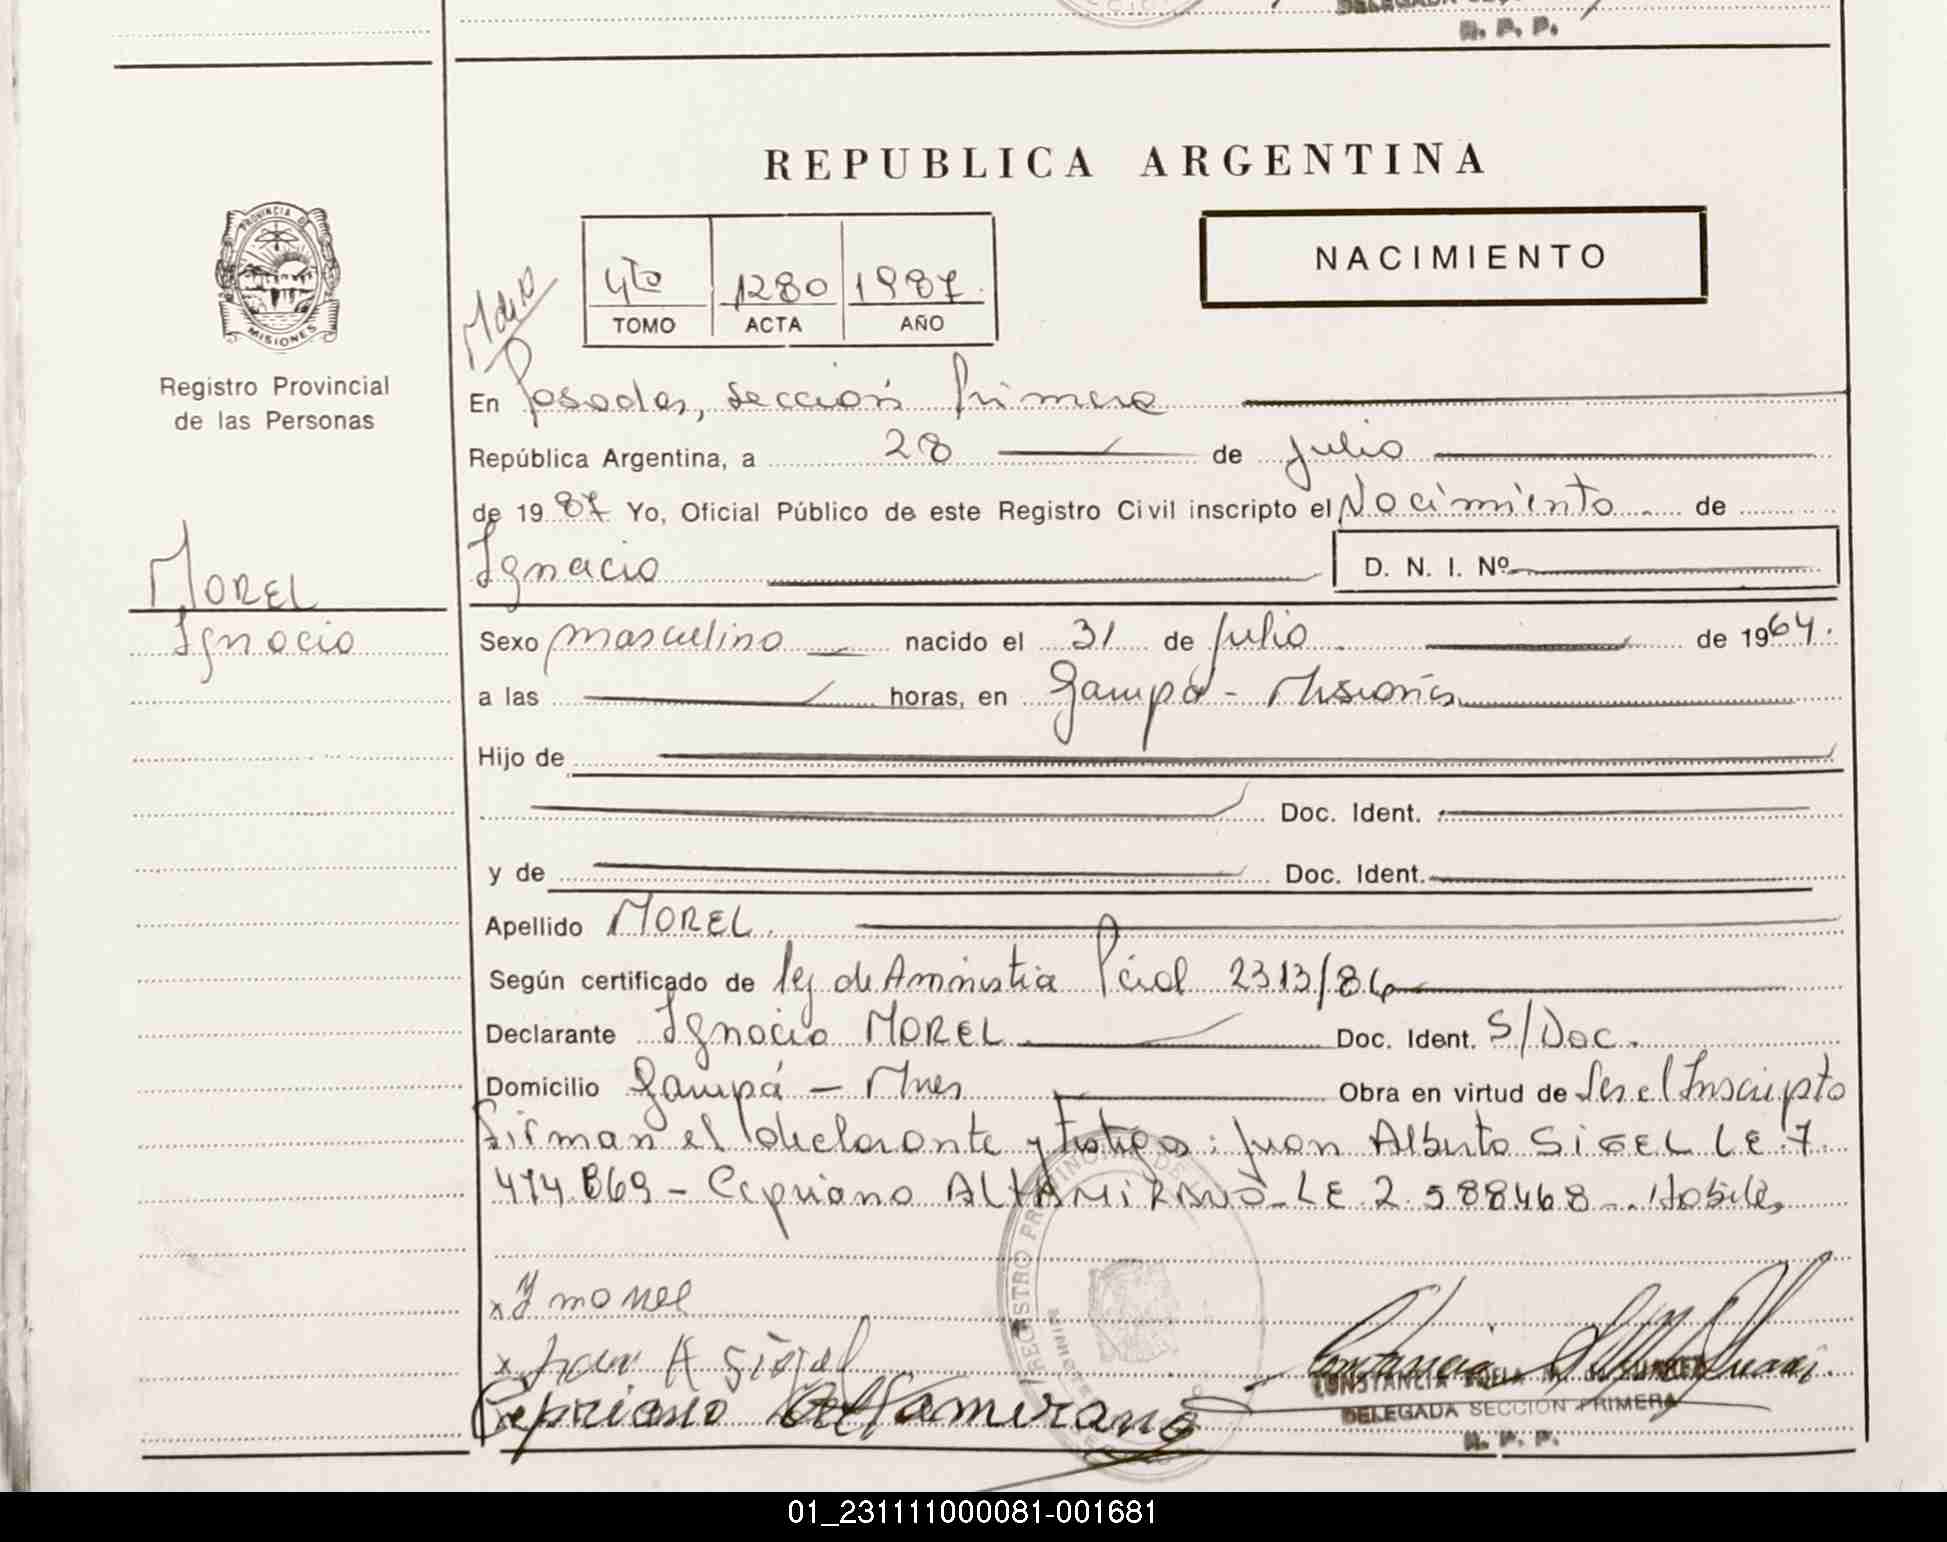 R. P. P.
REPUBLICA ARGENTINA
NACIMIENTO
4to 1280 1987
TOMO ACTA AÑO
PROVINCIA DE MISIONES
Registro Provincial
de las Personas
En Posadas, Sección Primera
República Argentina, a 28 de Julio
de 1987 Yo, Oficial Público de este Registro Civil inscripto el Nacimiento de
Ignacio D. N. I. Nº
MOREL
Ignacio
Sexo masculino nacido el 31 de Julio de 1964.
a las horas, en Gaurpá - Misiones
Hijo de
Doc. Ident.
y de Doc. Ident.
Apellido MOREL.
Según certificado de ley de Amnistia Pcial 2313/86
Declarante Ignacio MOREL Doc. Ident. S/Doc.
Domicilio Gaurpá - Mnes Obra en virtud de Ser el Inscripto
firman el declarante y testigos: Juan Alberto SIGEL LE 7.
474.869 - Cipriano ALTAMIRANO - LE 2.588.468 -. Hábiles
x I morel
x Juan A Sigel
Cepriano Altamirano
CONSTANCIA
DELEGADA SECCION PRIMERA
R. P. P.
01_231111000081-001681